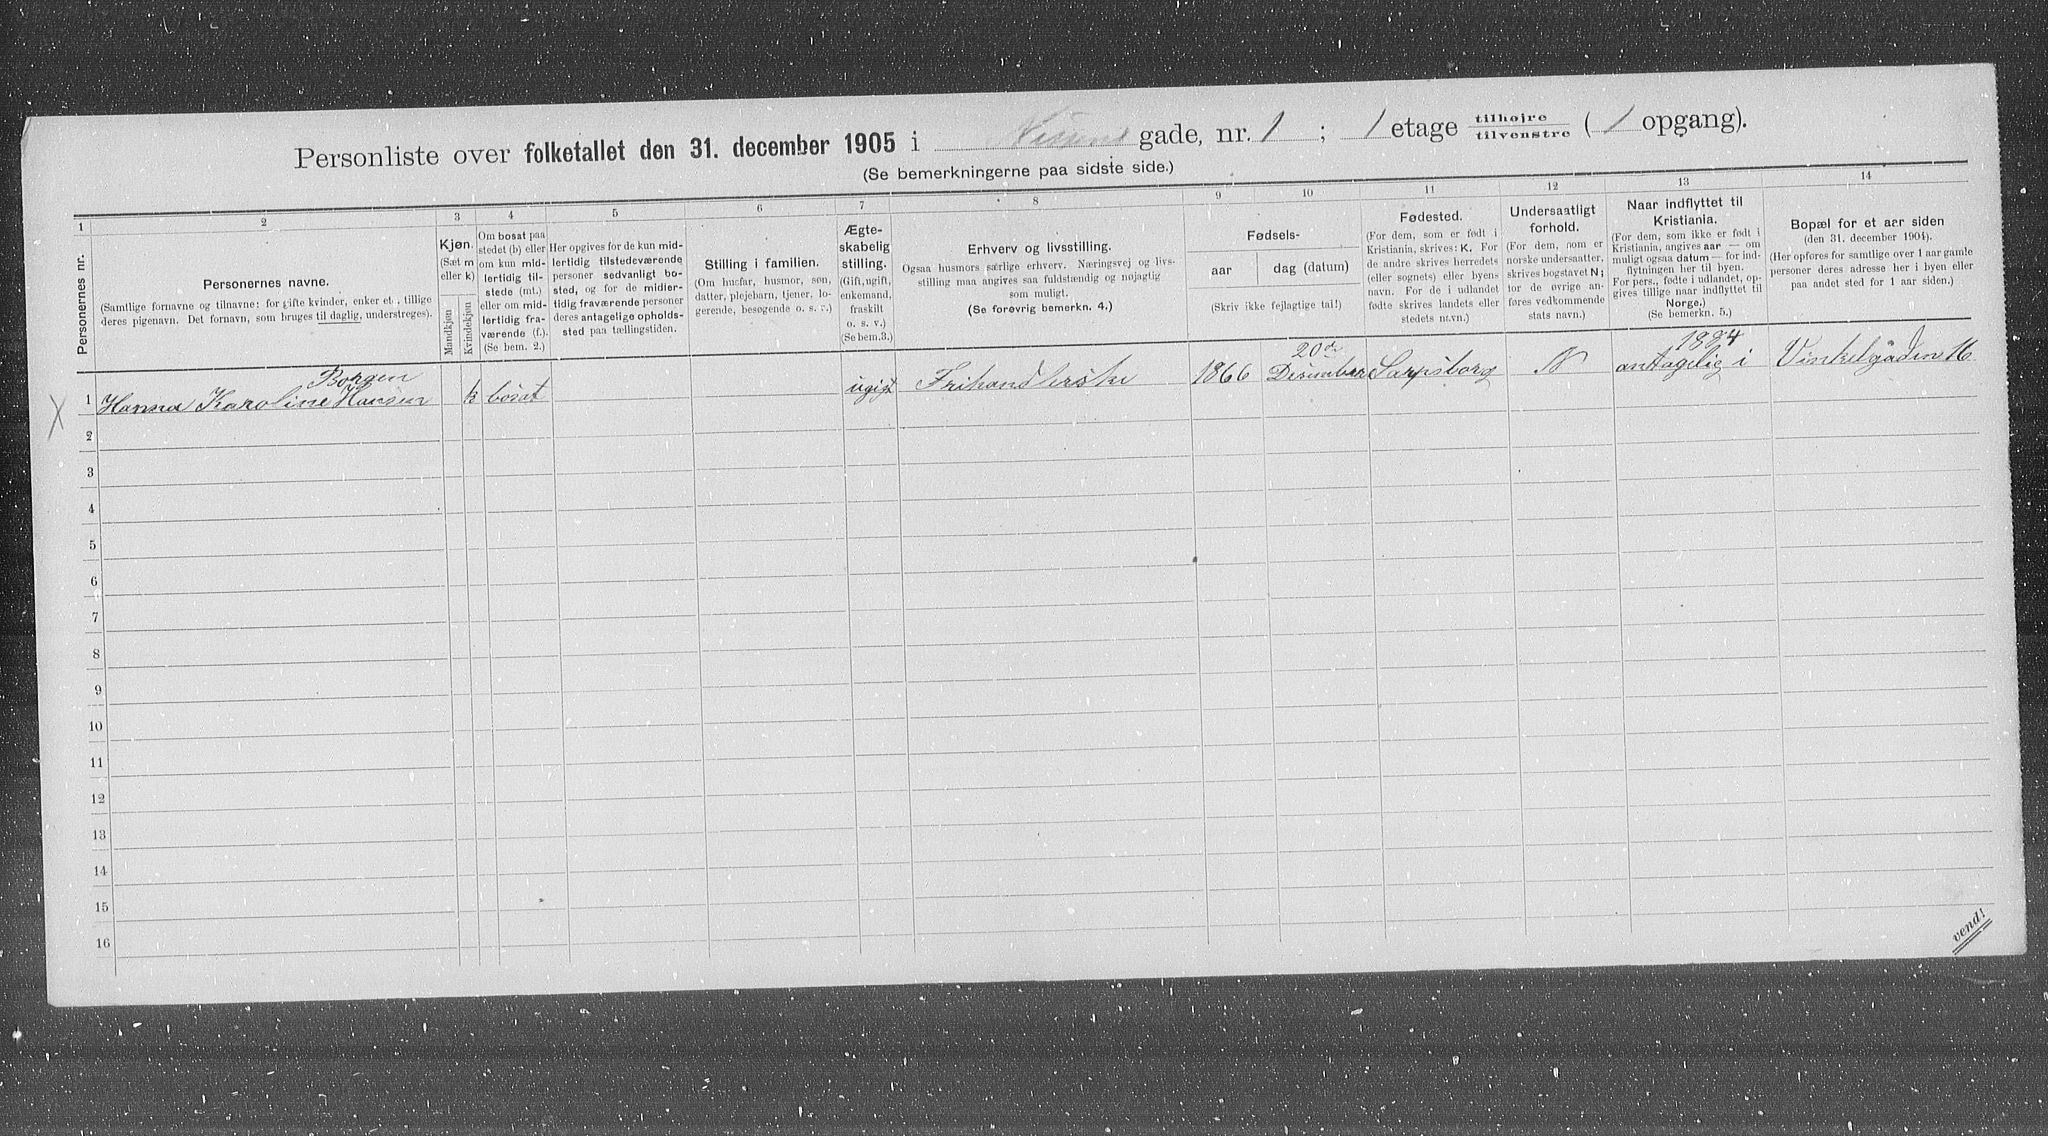 Personliste over folketallet den 31. december 1905 i gade, nr. 1 ; 1 etage tilhøjre tilvenstre ( 1 opgang).
(Se bemerkningerne paa sidste side.)
1 2 3 4 5 6 7 8 9 10 11 12 13 14
Personernes nr.
Personernes navne.
(Samtlige fornavne og tilnavne: for gifte kvinder, enker et., tillige
deres pigenavn. Det fornavn, som bruges til daglig, understreges).
Kjøn.
(Sæt m
eller k)
Mandkjøn
Kvindekjøn
Om bosat paa
stedet (b) eller
om kun mid-
lertidig til-
stede (mt.)
eller om mid-
lertidig fra-
værende (f.).
(Se bem. 2.)
Her opgives for de kun mid-
lertidig tilstedeværende
personer sedvanligt bo-
sted, og for de midler-
tidig fraværende personer
deres antagelige opholds-
sted paa tællingstiden.
Stilling i familien.
(Om husfar, husmor, søn,
datter, plejebarn, tjener, lo-
gerende, besøgende o. s. v.)
Ægte-
skabelig
stilling.
(Gift, ugift,
enkemand,
fraskilt
o. s. v.)
(Se bem.3.)
Erhverv og livsstilling.
Ogsaa husmors særlige erhverv. Næringsvej og livs-
stilling maa angives saa fuldstændig og nøjagtig
som muligt.
(Se forøvrig bemerkn. 4.)
Fødsels-
aar
dag (datum)
(Skriv ikke fejlagtige tal!)
Fødested.
(For dem, som er født i
Kristiania, skrives: K. For
de andre skrives herredets
(eller sognets) eller byens
navn. For de i udlandet
fødte skrives landets eller
stedets navn.)
Undersaatligt
forhold.
(For dem, som er
norske undersaatter,
skrives bogstavet N;
for de øvrige an-
føres vedkommende
stats navn.)
Naar indflyttet til
Kristiania.
(For dem, som ikke er født i
Kristiania, angives aar — om
muligt ogsaa datum — for ind-
flytningen her til byen.
For pers., fødte i udlandet, op-
gives tillige naar indflyttet til
Norge.)
(Se bemerkn. 5.)
Bopæl for et aar siden
(den 31. december 1904).
(Her opføres for samtlige over 1 aar gamle
personer deres adresse her i byen eller
paa andet sted for 1 aar siden.)
X 1 Hanna Karoline Borgen Hansen k bosat ugift Frihandlerske 1866 20de Desember Sarpsborg N antagelig i 1884 Vinkelgåden 16
2
3
4
5
6
7
8
9
10
11
12
13
14
15
16
vend!